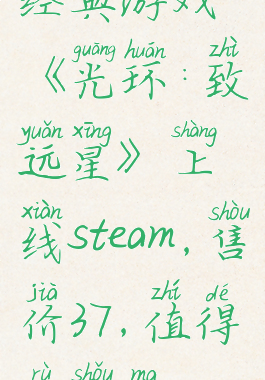 经典游戏
guāng huán zhì
《光环：致
yuǎn xīng shàng
远星》上
xiàn shòu
线steam，售
jià zhí dé
价37，值得
rù shǒu ma